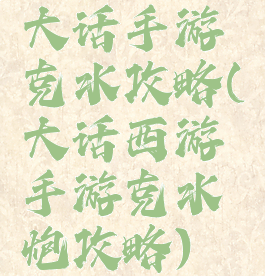 大话手游
克水攻略(
大话西游
手游克水
炮攻略)